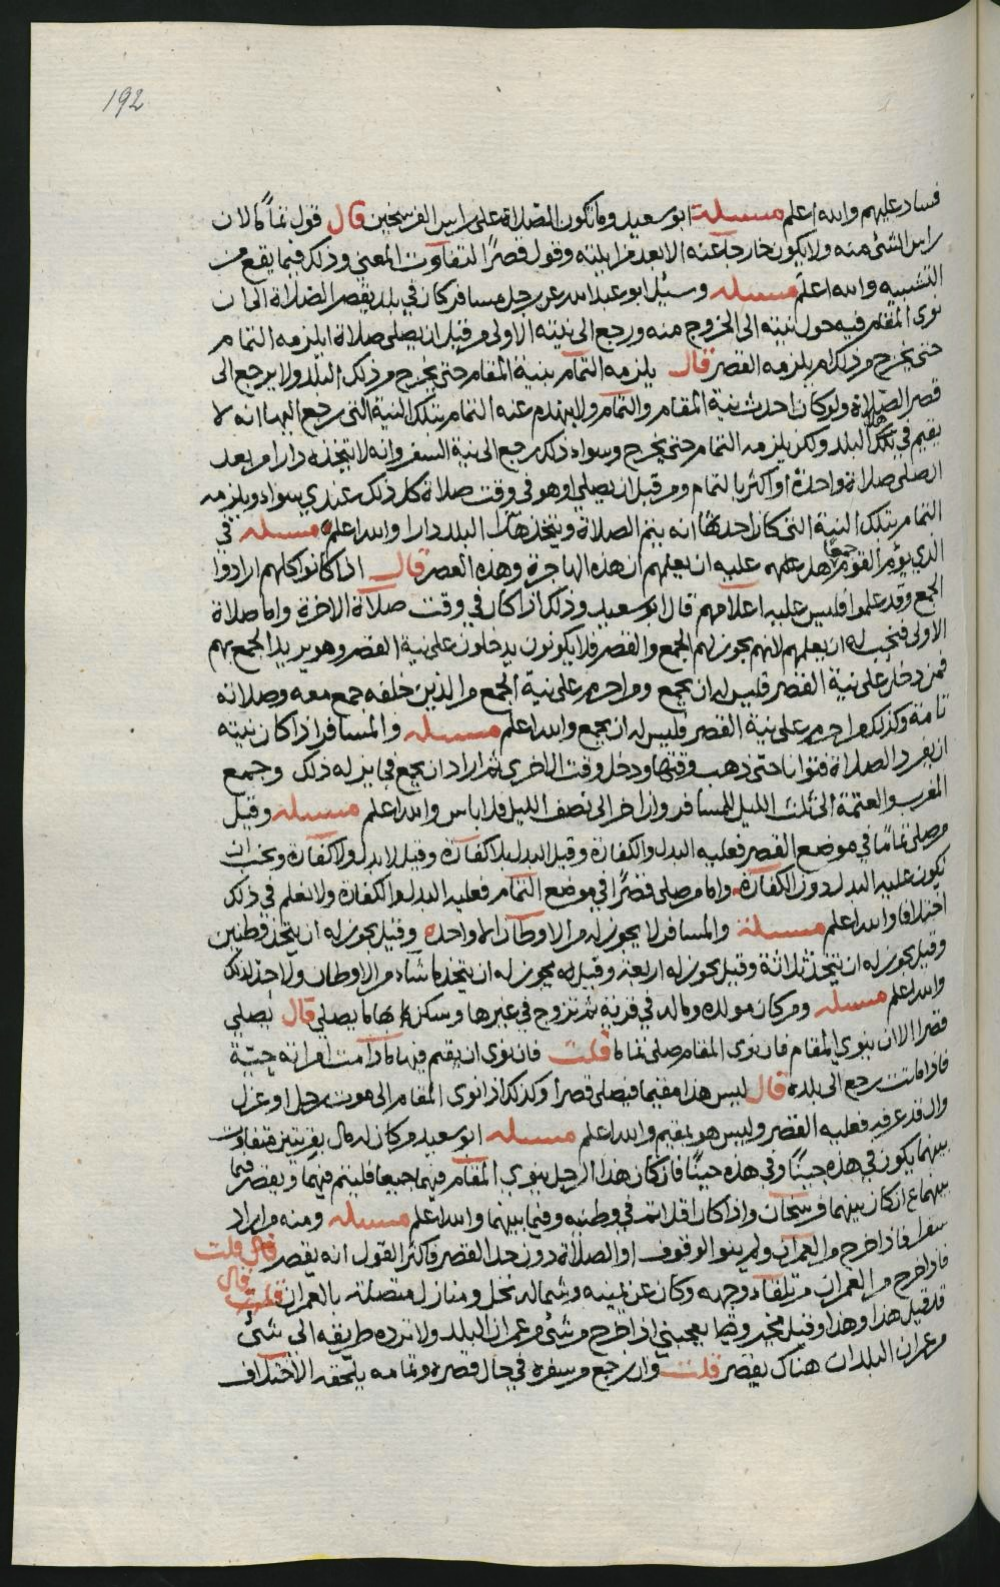 192
فساد عليهم والله اعلم مسئلة ابو سعيد وما تكون الصلاة على راس الفرسخين قال قول تماما لان
راس الشئ منه ولا يكون خارجا عنه الا بعد مزايلته وقول قصرا لتفاوت المعنى وذلك فيما يقع من
التشبيه والله اعلم مسئلة وسئل ابو عبد الله عن رجل مسافر كان في بلد يقصر الصلاة الى ان
نوى المقام فيه حول نيته الى الخروج منه ورجع الى نيته الاولى من قبل ان يصلى صلاة ايلزمه التمام
حتى يخرج من ذلك ام يلزمه القصر قال يلزمه التمام بنية المقام حتى يخرج من ذلك البلد ولا يرجع الى
قصر الصلاة ولو كان احدث نية المقام والتمام ولا ينهدم عنه التمام بتلك النية التي رجع اليها انه لا
يقيم في ذلك البلد ولكن يلزمه التمام حتى يخرج وسواء ذلك رجع الى نية السفر وانه لا يتخذه دارا من بعد
ان صلى صلاة واحدة او اكثر بالتمام ومن قبل ان يصلي او هو في وقت صلاة كل ذلك عندي سواء ويلزمه
التمام بتلك النية التي كان احدثها انه يتم الصلاة ويتخذ هذا البلد دارا والله اعلم مسئلة في
الذي يؤم القوم جمعا هل عليه ان يعلمهم ان هذه الهاجرة وهذه العصر قال اذا كانوا كلهم ارادوا
الجمع وقد علموا فليس عليه اعلامهم قال ابو سعيد وذلك اذا كان في وقت صلاة الاخرة واما صلاة
الاولى فيجب له ان يعلمهم لانهم يجوز لهم الجمع والقصر فلا يكونون يدخلون على نية القصر وهو يريد الجمع بهم
فمن دخل على نية القصر فليس له ان يجمع ومن احرم على نية الجمع من الذين خلفه جمع معه وصلاته
تامة وكذلك من احرم على نية القصر فليس له ان يجمع والله اعلم مسئلة والمسافر اذا كان نيته
ان يفرد الصلاة فتوانا حتى ذهب وقتها ودخل وقت الاخرى ثم اراد ان يجمع فجايز له ذلك وجمع
المغرب والعتمة الى ثلث الليل للمسافر وان اخر الى نصف الليل فلا باس والله اعلم مسئلة وقيل
من صلى تماما في موضع القصر فعليه البدل والكفارة وقيل البدل بلا كفارة وقيل لا بدل ولا كفارة ونحب ان
يكون عليه البدل دون الكفارة واما من صلى قصرا في موضع التمام فعليه البدل والكفارة ولا نعلم في ذلك
اختلافا والله اعلم مسئلة والمسافر لا يجوز له من الاوطان الا واحدة وقيل يجوز له ان يتخذ وطنين
وقيل يجوز له ان يتخذ ثلاثة وقيل يجوز له اربعة وقيل له يجوز له ان يتخذ ما شاء من الاوطان ولا حد لذلك
والله اعلم مسئلة ومن كان مولده وماله في قرية ثم تزوج في غيرها وسكن بها ما يصلي قال يصلي
قصرا الا ان ينوي المقام فان نوى المقام صلى تماما قلت فان نوى ان يقيم فيها ما دامت امراته حية
فاذا ماتت رجع الى بلده قال ليس هذا مقيما فيصلي قصرا وكذلك اذا نوى المقام الى موت رجل او عزل
وال قد عرفه فعليه القصر وليس هو بمقيم والله اعلم مسئلة ابو سعيد من كان له مال بقريتين متفاوت
بينهما يكون في هذه حينا وفي هذه حينا فان كان هذا الرجل ينوي المقام فيهما جميعا فليتم فيهما ويقصر فيما
بينهما ان كان بينهما فرسخان واذا كان اقل اتم في وطنه وفيما بينهما والله اعلم مسئلة ومنه من اراد
سفرا فاذا خرج من العمران ولم ينو الوقوف او الصلاة دون حد القصر فاكثر القول انه يقصر قال قلت
فاذا خرج من العمران من تلقاء وجهه وكان عن يمينه وشماله نخل ومنازل متصلة بالعمران قال
قد قيل هذا وهذا وقيل مخير وقيل يعجبني اذا خرج من شئ من عمران البلد ولا ترده طريقه الى شئ
من عمران البلدان هناك يقصر قلت وان رجع من سفره في حال قصره وتمامه يلحقه الاختلاف